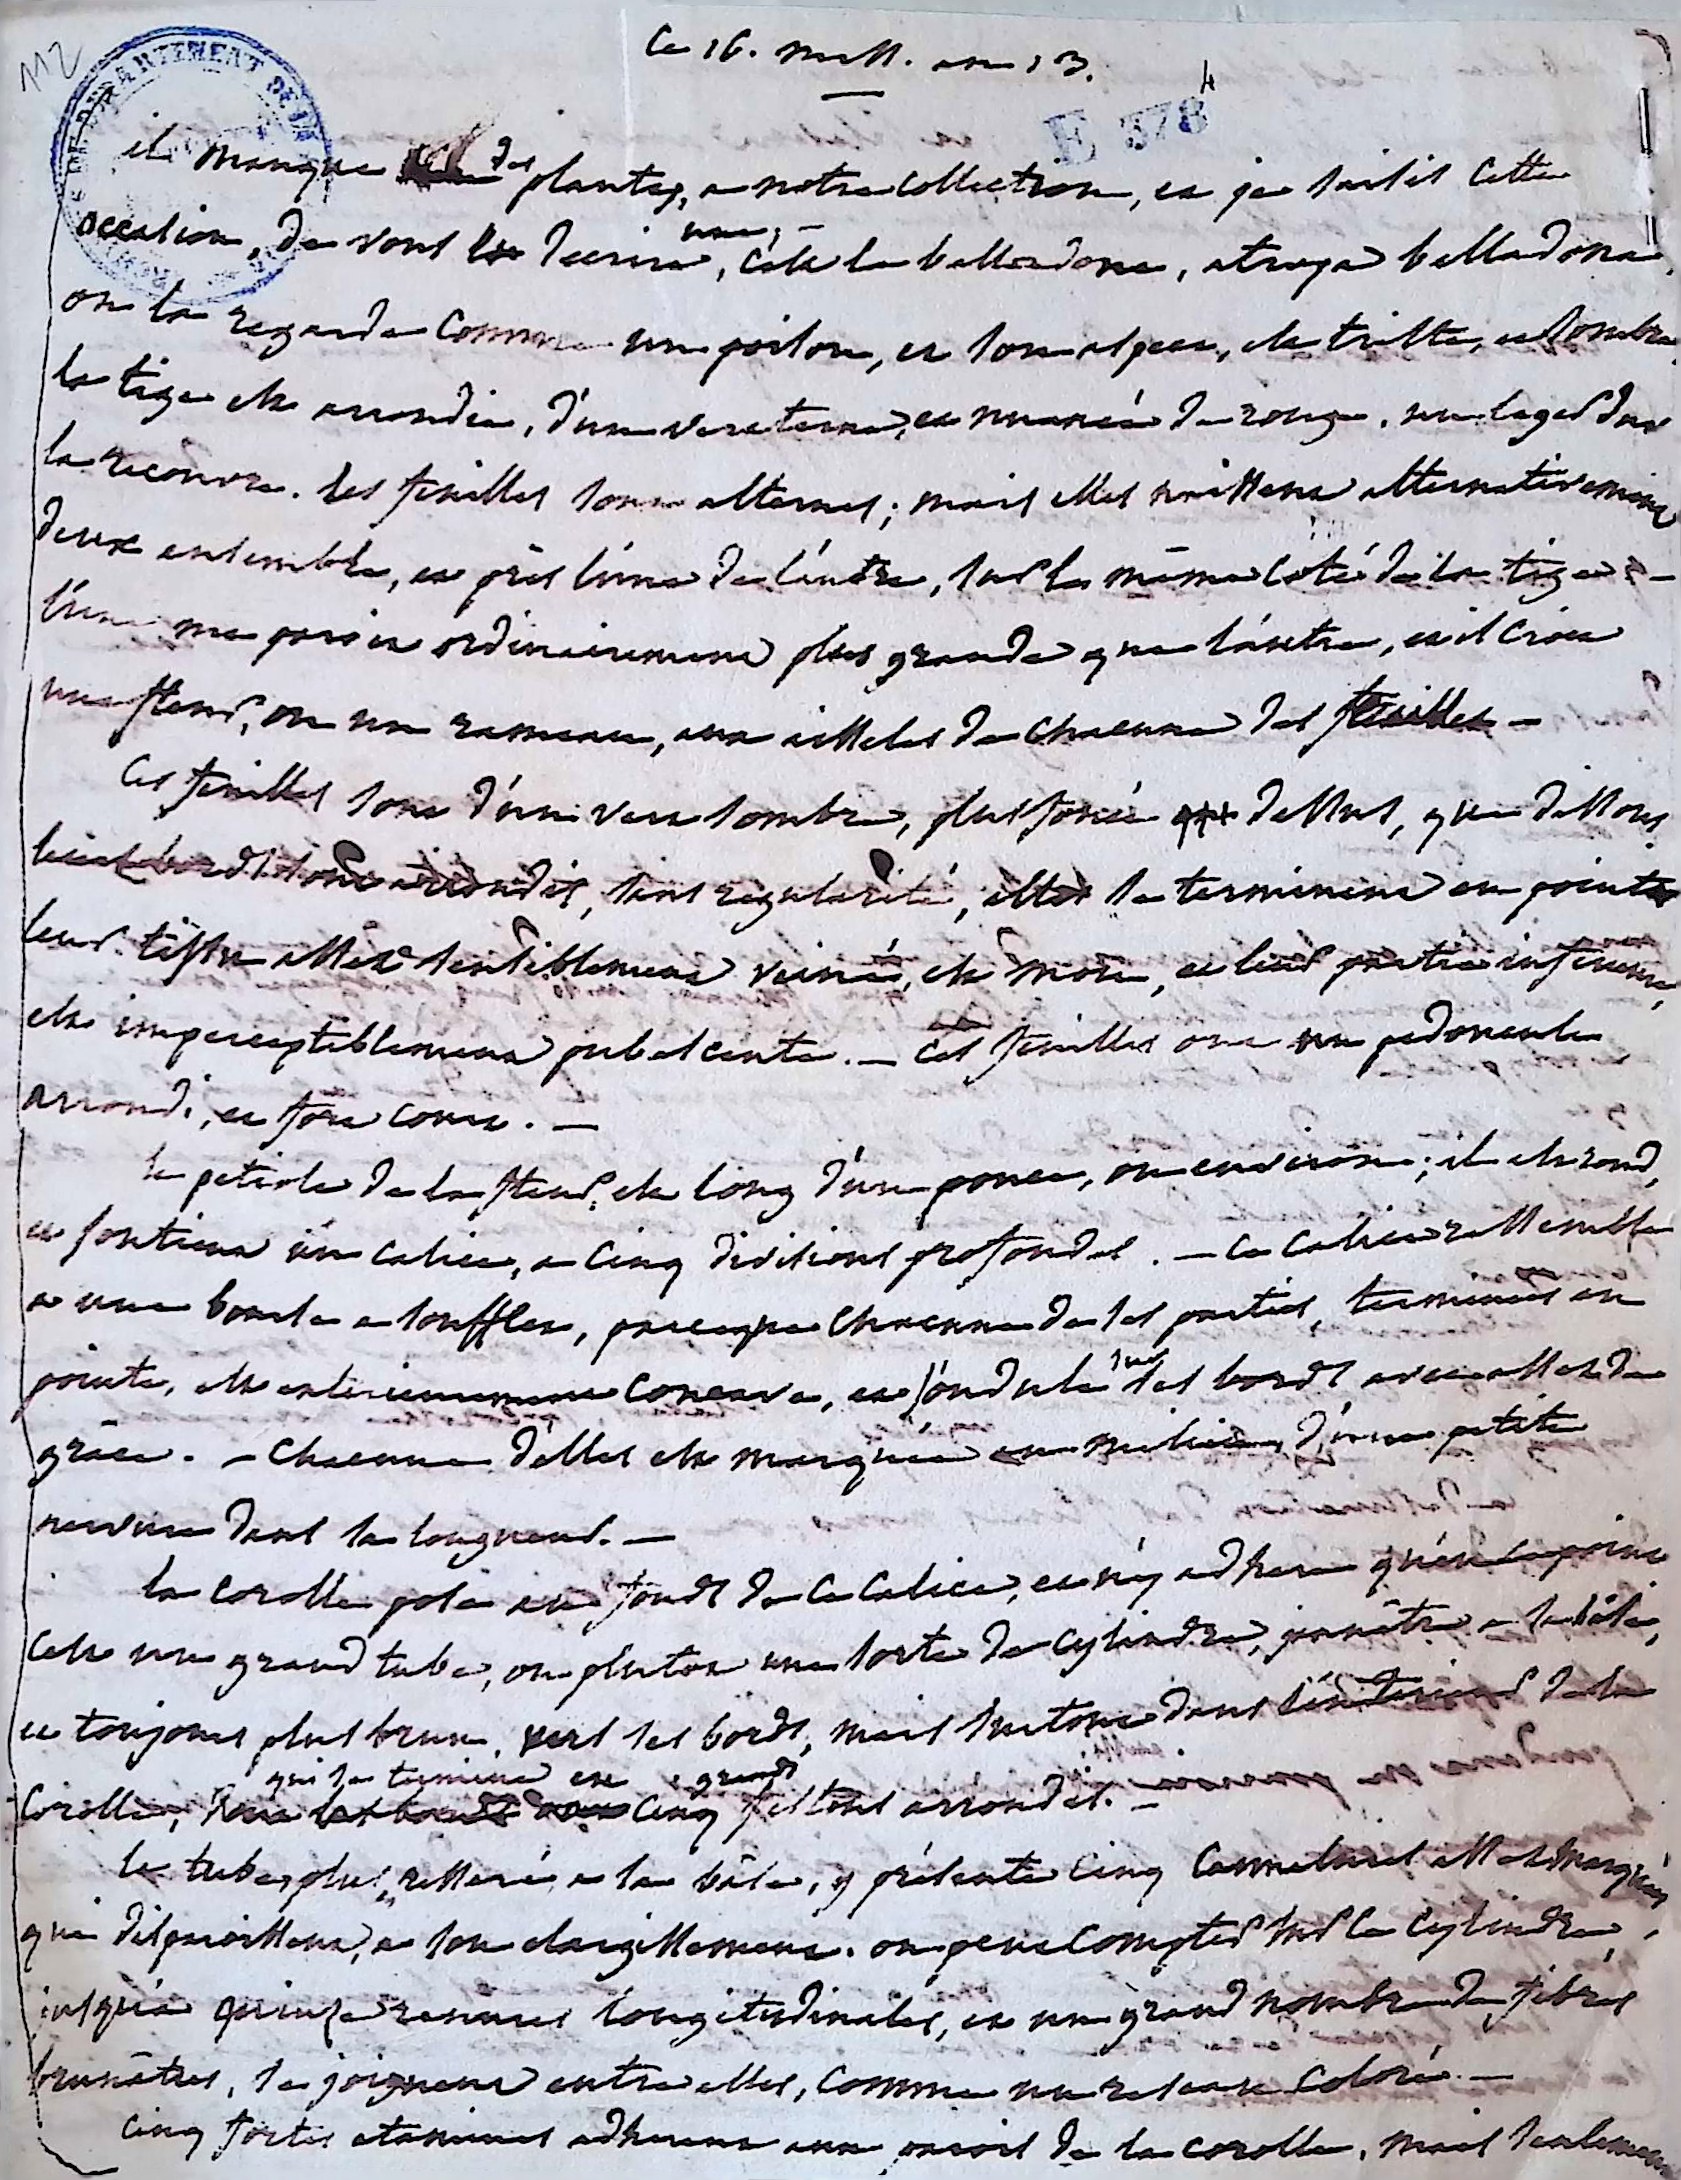 112
ce 16. mess. an 13.
E 378 4
il manque des plantes, a notre collection, et je saisis cette
occasion, de vous decrire une, c'est la belladone, atropa belladona,
on la regarde comme un poison, et son aspect, est triste, et sombre,
la tige est arrondie, d'un vert terne, et nuancé de rouge. un leger duvet
la recouvre. les feuilles sont alternes; mais elles naissent alternativement
deux ensemble, et près l'une de l'autre, sur le même coté de la tige -
l'une me paroit ordinairement plus grande que l'autre, et il croit
une fleur, ou un rameau, aux aisselles de chacune des feuilles -
Ces feuilles sont d'un vert sombre, plus foncé dessus, que dessous,
leurs bords sont arrondis, sans regularité, elles se terminent en pointe
leur tissu assez sensiblement veiné, est mou, et leur partie inferieure,
est imperceptiblement pubescente. - Ces feuilles ont un pedoncule
arrondi, et fort court. -
le petiole de la fleur, est long d'un pouce, ou environ; il est rond,
et soutient un calice, a cinq divisions profondes. - ce calice ressemble
a une boule a souffler, parceque chacune de ses parties, terminées en
pointe, est exterieurement concave, et s'ondule sur ses bords avec assez de
grâce. - chacune d'elles est marquée au milieu, d'une petite
nervure dans sa longueur. -
la corolle posée au fond de ce calice, et n'y adhere qu'en ce point
c'est un grand tube, ou plutot une sorte de cylindre, jaunâtre a sa bâse,
et toujours plus brun, vers ses bords, mais surtout dans l'interieur de la
corolle, qui se termine en cinq grands festons arrondis. -
le tube, plus resserré a sa bâse, y présente cinq cannelures assez marquées,
qui disparoissent, a son elargissement. on peut compter sur ce cylindre,
jusqu'à quinze rainures longitudinales, et un grand nombre de fibres
brunâtres, se joignent entre elles, comme un reseau coloré. -
Cinq fortes etamines adherent aux parois de la corolle, mais seulement